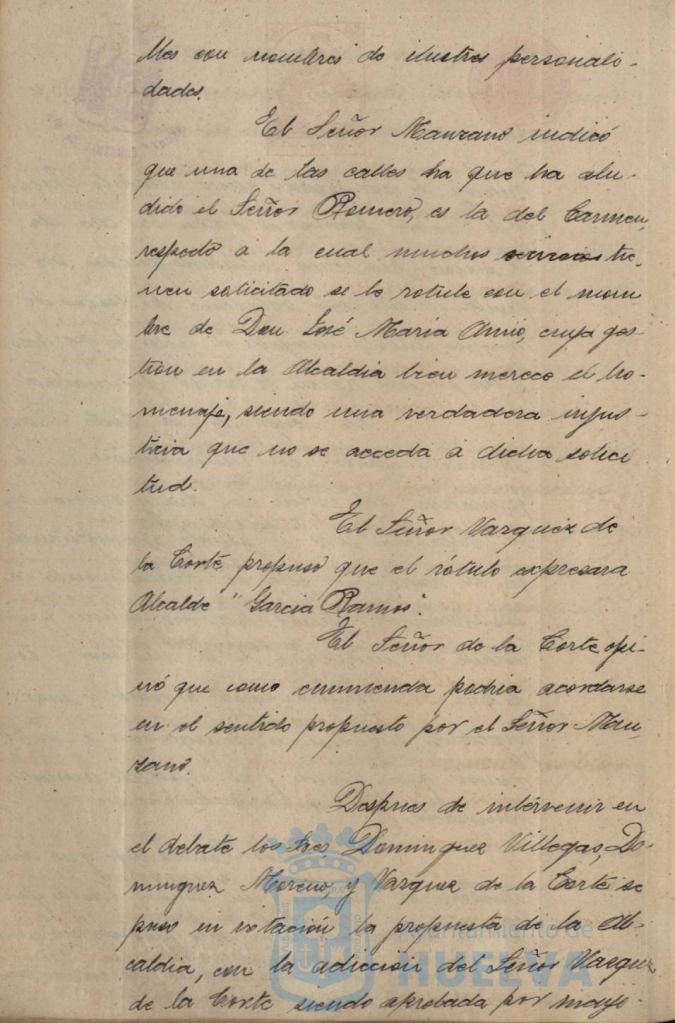 lles con nombres de ilustres personali-
dades.
El Señor Manzano indicó
que una de las calles ha que ha alu-
dido el Señor Romero, es la del Carmen,
respecto a la cual muchos vecinos tie-
nen solicitado se le rotule con el nom-
bre de Don José Maria Amo, cuya ges-
tion en la Alcaldia bien merece el ho-
menaje, siendo una verdadera injus-
ticia que no se acceda a dicha solici
tud.
El Señor Vazquez de
la Corte propuso que el rótulo expresara
Alcalde "Garcia Ramos".
El Señor de la Corte opi-
nó que como enmienda podria acordarse
en el sentido propuesto por el Señor Man-
zano.
Despues de intervenir en
el debate los Sres Dominguez Villegas, Do-
minguez Moreno, y Vazquez de la Corte se
puso en votación la propuesta de la Al-
caldia, con la adicción del Señor Vazquez
de la Corte siendo aprobada por mayo-
Ayuntamiento de
HUELVA